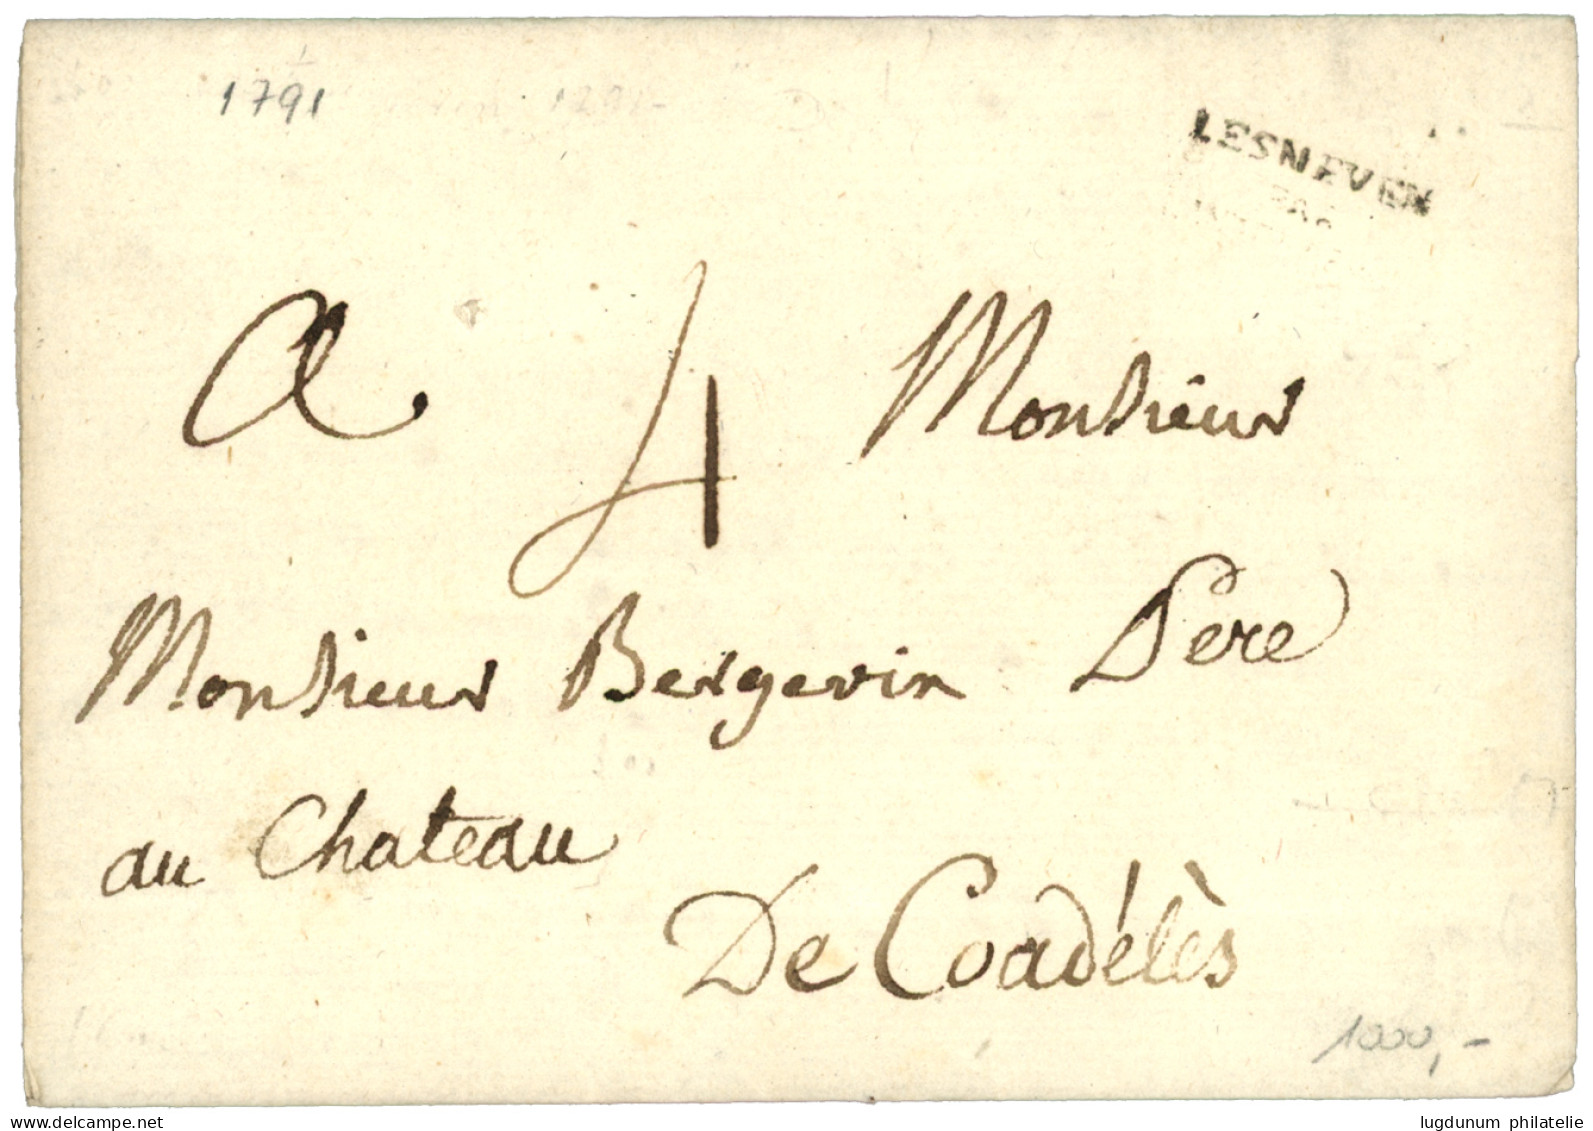 1791
LESNEVEN
a 4 Monsieur
Monsieur Bergevin Pere
au Chateau
De Coadélès
1000,-
delcampe.net
lugdunum philatelie